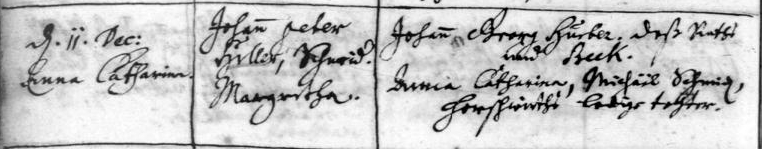 d. 11. Dec:
Anna Catharina.
Johann Peter
Hiller, Schneid.
Margretha.
Johann Georg Hueber, deß Raths
und Beck.
Anna Catharina, Michäel Schmids,
ledige tochter.